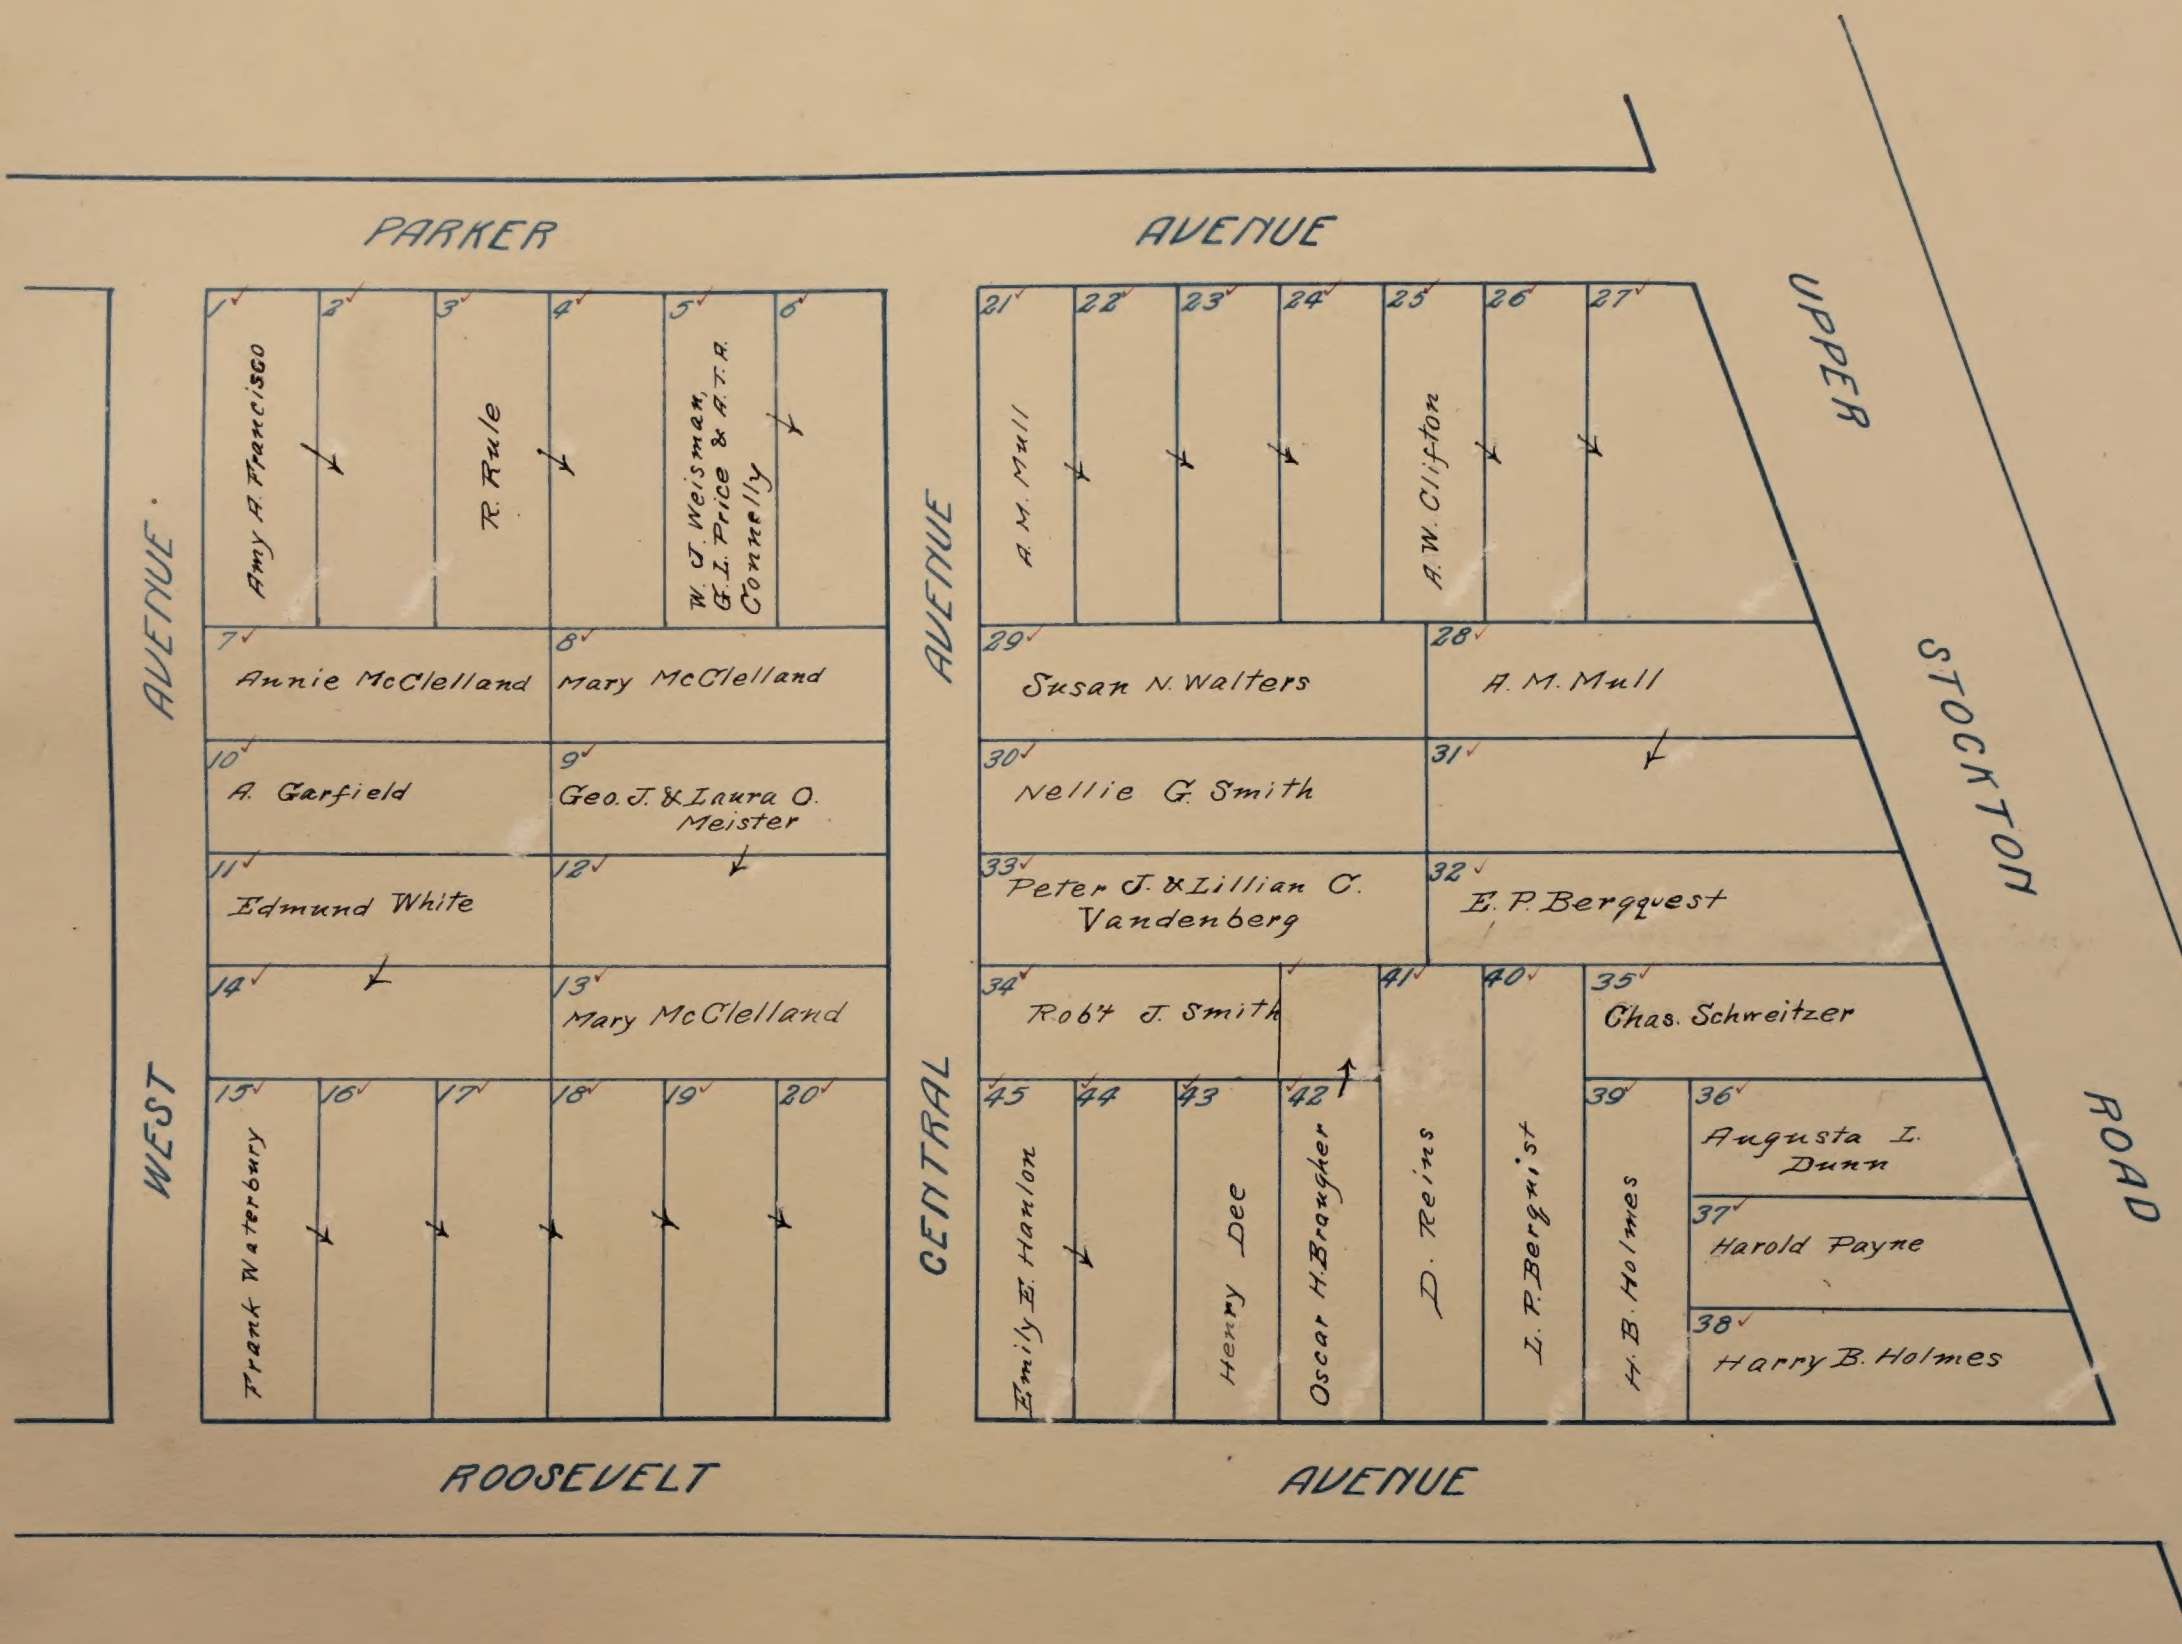 PARKER AVENUE
UPPER STOCKTON ROAD
WEST AVENUE
CENTRAL AVENUE
1
Amy A. Francisco
2
3
R. Rule
4
5
W. J. Weisman,
G. I. Price & A. T. A.
Connelly
6
7
Annie McClelland
8
Mary McClelland
10
A. Garfield
9
Geo. J. & Laura O.
Meister
11
Edmund White
12
14
13
Mary McClelland
15
Frank Waterbury
16
17
18
19
20
21
A. M. Mull
22
23
24
25
A. W. Clifton
26
27
29
Susan N. Walters
28
A. M. Mull
30
Nellie G. Smith
31
33
Peter J. & Lillian C.
Vandenberg
32
E. P. Bergquest
34
Rob't J. Smith
41
D. Reins
40
L. P. Bergnist
35
Chas. Schweitzer
45
Emily E. Hanlon
44
43
Henry Dee
42
Oscar H. Braugher
39
H. B. Holmes
36
Augusta L.
Dunn
37
Harold Payne
38
Harry B. Holmes
ROOSEVELT AVENUE